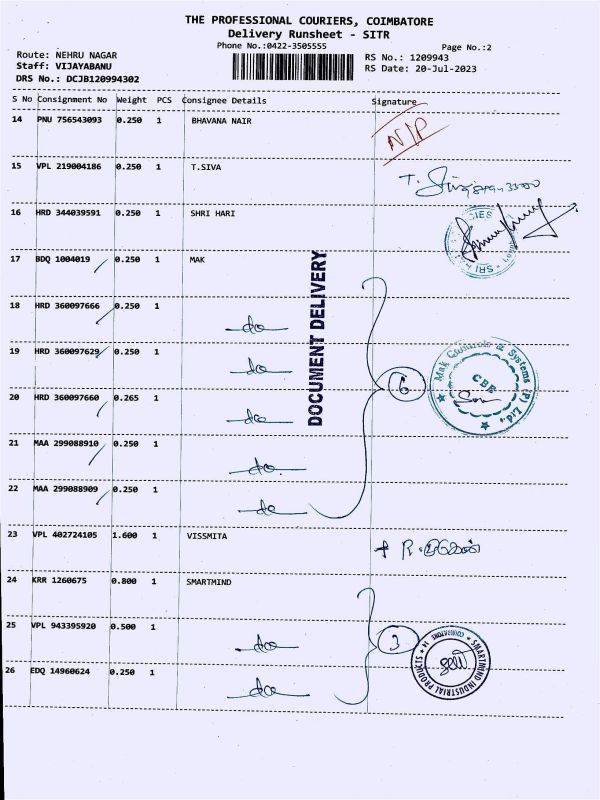 THE PROFESSIONAL COURIERS, COIMBATORE
Delivery Runsheet - SITR
Phone No.:0422-3505555
Page No.:2
Route: NEHRU NAGAR
RS No.: 1209943
Staff: VIJAYABANU
RS Date: 20-Jul-2023
DRS No.: DCJB120994302
S No Consignment No Weight PCS Consignee Details Signature
14 PNU 756543093 0.250 1 BHAVANA NAIR N/P
15 VPL 219004186 0.250 1 T.SIVA T. Siva
16 HRD 344039591 0.250 1 SHRI HARI
17 BDQ 1004019 0.250 1 MAK
DOCUMENT DELIVERY
18 HRD 360097666 0.250 1 do
19 HRD 360097629 0.250 1 do
20 HRD 360097660 0.265 1 do 6
Mak Controls & Systems (P) Ltd.,
CBE
21 MAA 299088910 0.250 1 do
22 MAA 299088909 0.250 1 do
23 VPL 402724105 1.600 1 VISSMITA
24 KRR 1260675 0.800 1 SMARTMIND
25 VPL 943395920 0.500 1 do 3
SMARTMIND INDUSTRIAL PRODUCTS
26 EDQ 14960624 0.250 1 do